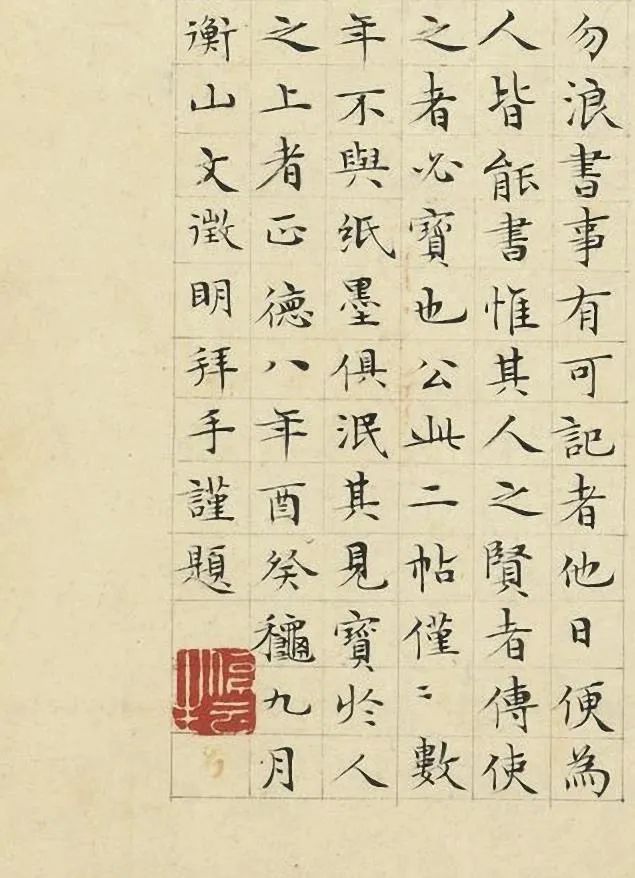 勿浪書事有可記者他日便為
人皆能書惟其人之賢者傳使
之者必寶也公此二帖僅〻數
年不與紙墨俱泯其見寶於人
之上者正德八年酉癸龝九月
衡山文徵明拜手謹題